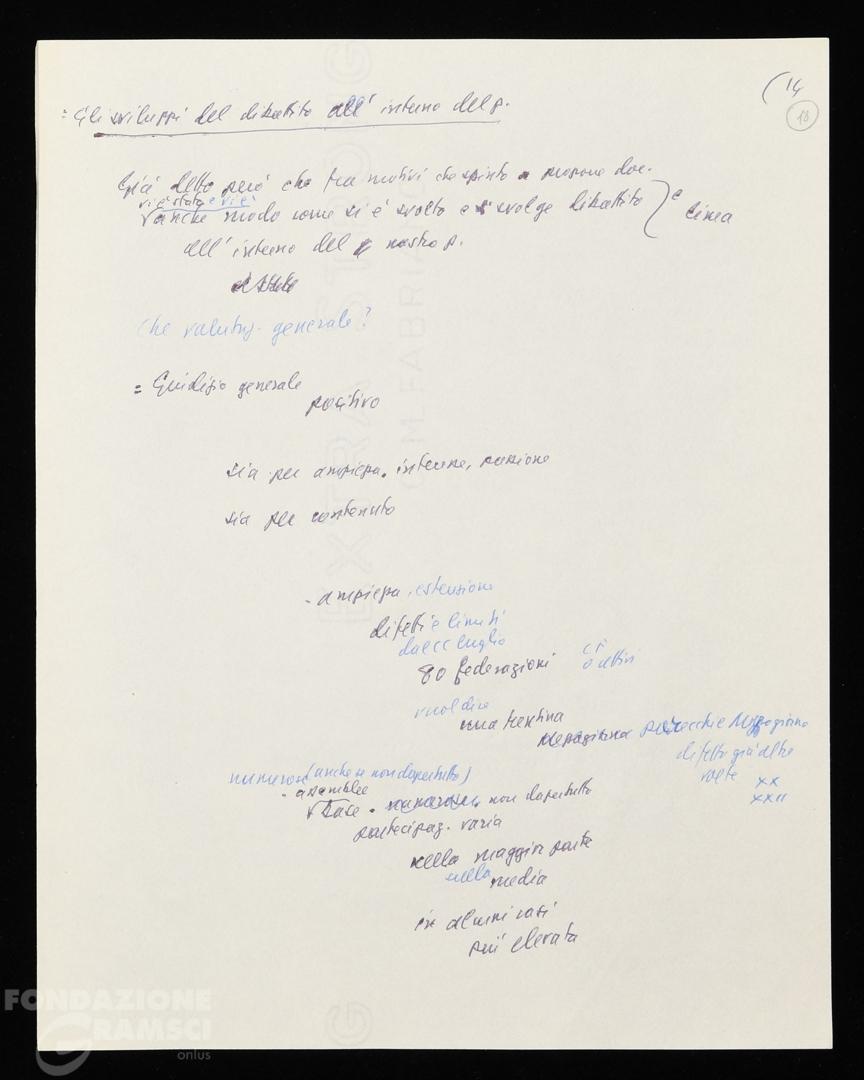 (14
18
= Gli sviluppi del dibattito all' interno del p.
Già detto però che tra motivi che spinto a proporre doc.
vi è stato e vi è
anche modo come si è svolto e svolge dibattito
e linea
all' interno del nostro p.
Che valutaz. generale?
= Giudizio generale
positivo
sia per ampiezza, intensione
sia per contenuto
- ampiezza, estensione
difetti e limiti
da CC luglio
80 federazioni CF
o attivi
vuol dire
una trentina
Mezzogiorno parecchie Mezzogiorno
difetto già altre
volte XX
XXII
numerose (anche se non dapertutto)
- assemblee
base - numerose, non dapertutto
partecipaz. varia
nella maggior parte
nella media
in alcuni casi
più elevata
EXTRA STRONG
G.M. FABRIA
G
FONDAZIONE
GRAMSCI
onlus